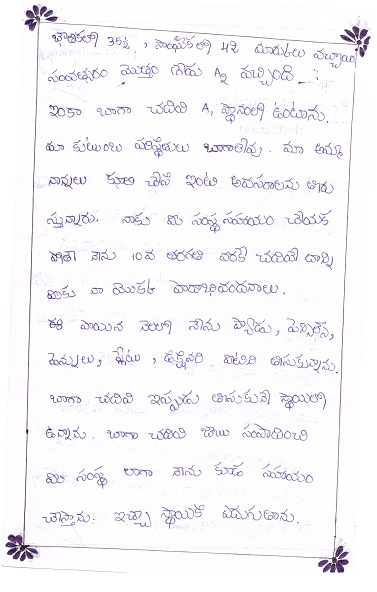 భౌతికలో 35కి, సాంఘీకలో 42 మార్కులు వచ్చాయి
సంవత్సరం మొత్తం గ్రేడు A2 వచ్చింది
ఇంకా బాగా చదివి A1 స్థానంలో ఉంటాను.
మా కుటుంబ పరిస్థితులు బాగాలేవు. మా అమ్మ
నాన్నలు కూలి చేసి ఇంటి అవసరాలను తీరు
స్తున్నారు. నాకు మీ సంస్థ సహాయం చేయక
పోతే నేను 10వ తరగతి వరకే చదివే దాన్ని
మీకు నా మొదట పాదాభివందనాలు.
ఈ పోయిన నెలలో నేను ప్యాడు, పెన్సిల్స్,
పెన్నులు, ప్లేటు, డిక్షనరి వీటిని తీసుకున్నాను.
బాగా చదివి ఇప్పుడు తీసుకునే స్థాయిలో
ఉన్నాను. బాగా చదివి జాబు సంపాదించి
మీ సంస్థ లాగా నేను కూడ సహాయం
చేస్తాను. ఇచ్చే స్థాయికి ఎదుగుతాను.